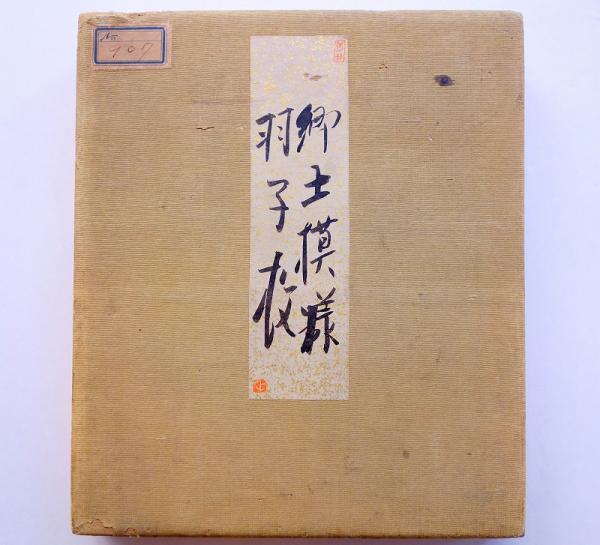 No. 907
郷土模様
羽子板
上